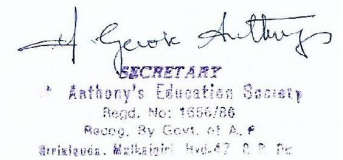 SECRETARY
Anthony's Education Society
Regd. No: 1656/86
Recog. By Govt. of A. P
Malkajgiri Hyd-47